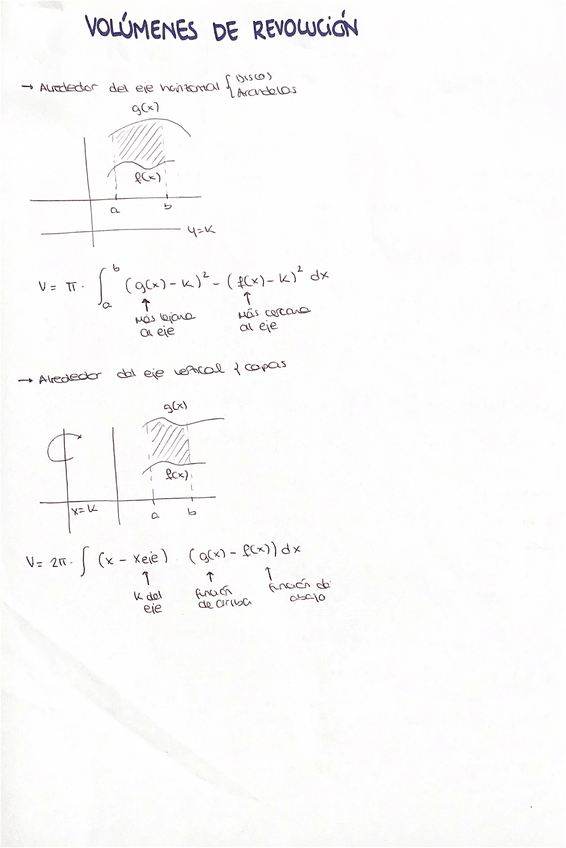 VOLÚMENES DE REVOLUCIÓN
→ Alrededor del eje horizontal { Discos
Arandelas
g(x)
f(x)
a b
y=k
V = π · ∫ₐᵇ (g(x) - k)² - (f(x) - k)² dx
↑ ↑
Más lejana Más cercana
al eje al eje
→ Alrededor del eje vertical { capas
g(x)
f(x)
x=k
a b
V = 2π · ∫ (x - xeje) · (g(x) - f(x)) dx
↑ ↑ ↑
k del función función de
eje de arriba abajo